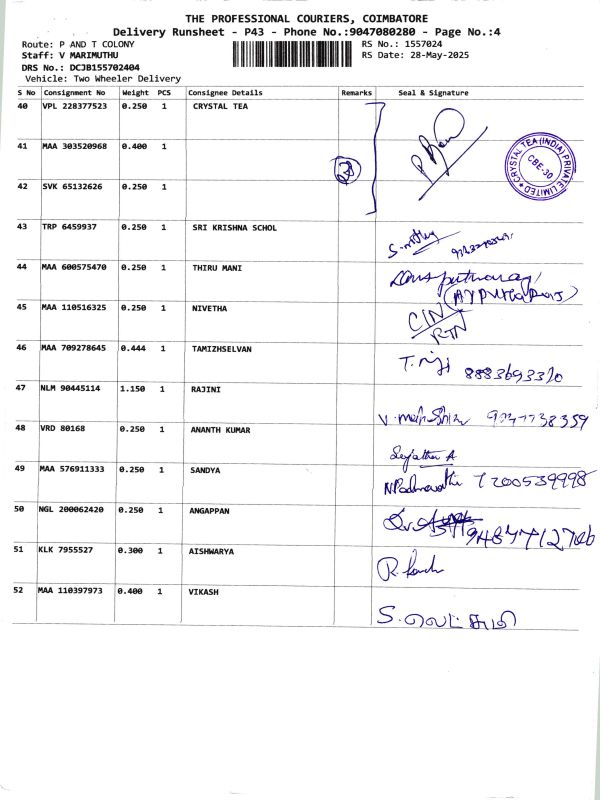 THE PROFESSIONAL COURIERS, COIMBATORE
Delivery Runsheet - P43 - Phone No.:9047080280 - Page No.:4
Route: P AND T COLONY RS No.: 1557024
Staff: V MARIMUTHU RS Date: 28-May-2025
DRS No.: DCJB155702404
Vehicle: Two Wheeler Delivery
S No Consignment No Weight PCS Consignee Details Remarks Seal & Signature
40 VPL 228377523 0.250 1 CRYSTAL TEA
41 MAA 303520968 0.400 1
CRYSTAL TEA (INDIA) PRIVATE LIMITED
CBE-30
42 SVK 65132626 0.250 1
43 TRP 6459937 0.250 1 SRI KRISHNA SCHOL
44 MAA 600575470 0.250 1 THIRU MANI
45 MAA 110516325 0.250 1 NIVETHA
CIN/
RTN
46 MAA 709278645 0.444 1 TAMIZHSELVAN
8883693370
47 NLM 90445114 1.150 1 RAJINI
48 VRD 80168 0.250 1 ANANTH KUMAR
49 MAA 576911333 0.250 1 SANDYA
7200539998
50 NGL 200062420 0.250 1 ANGAPPAN
51 KLK 7955527 0.300 1 AISHWARYA
52 MAA 110397973 0.400 1 VIKASH